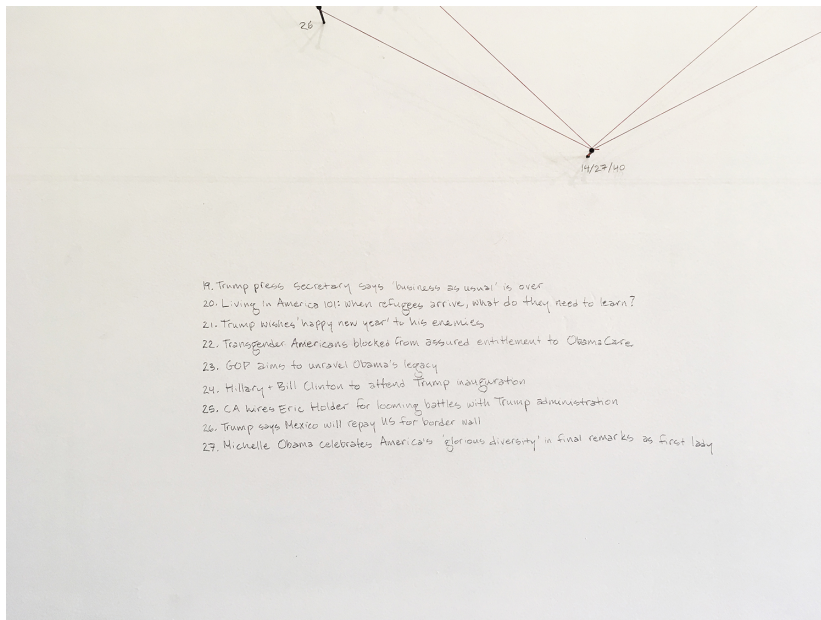 26
19/27/40
19. Trump press secretary says 'business as usual' is over
20. Living in America 101: when refugees arrive, what do they need to learn?
21. Trump wishes 'happy new year' to his enemies
22. Transgender Americans blocked from assured entitlement to ObamaCare
23. GOP aims to unravel Obama's legacy
24. Hillary + Bill Clinton to attend Trump inauguration
25. CA hires Eric Holder for looming battles with Trump administration
26. Trump says Mexico will repay US for border wall
27. Michelle Obama celebrates America's 'glorious diversity' in final remarks as first lady